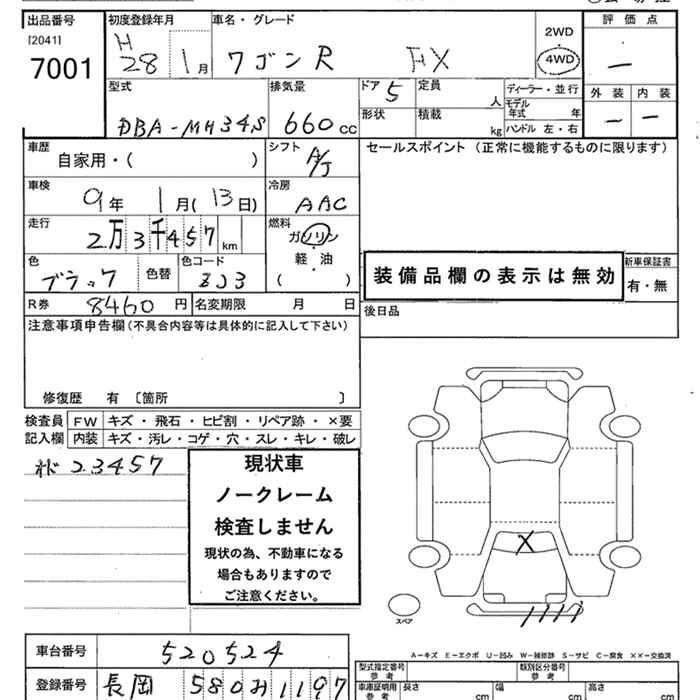 出品番号 初度登録年月 車名・グレード 評価点
[2041] H 2WD
7001 28 1月 ワゴンR FX 4WD ー
型式 排気量 ドア 5 定員 人 ディーラー・並行 外装 内装
形状 積載 kg モデル年式 年 ー ー
DBA-MH34S 660cc ハンドル 左・右
車歴 シフト セールスポイント (正常に機能するものに限ります)
自家用・( ) A/T
車検 冷房
9年 1月(13日) AAC
走行 燃料
2万3千457km ガソリン
軽・油
色 色コード ( ・ )
ブラック 色替 ZJ3
装備品欄の表示は無効
新車保証書
有・無
R券 8460円 名変期限 月 日 後日品
注意事項申告欄(不具合内容等は具体的に記入して下さい)
修復歴 有 〔箇所 〕
検査員 FW キズ・飛石・ヒビ割・リペア跡・×要
記入欄 内装 キズ・汚レ・コゲ・穴・スレ・キレ・破レ
オド 23457
現状車
ノークレーム
検査しません
現状の為、不動車になる
場合もありますので
ご注意ください。
X
スペア
A-キズ E-エクボ U-凹み W-補修跡 S-サビ C-腐食 ××-交換済
車台番号 520524
型式指定番号 参考 類別区分番号 参考
登録番号 長岡 580み1197
車庫証明用 参考 長さ cm 幅 cm 高さ cm